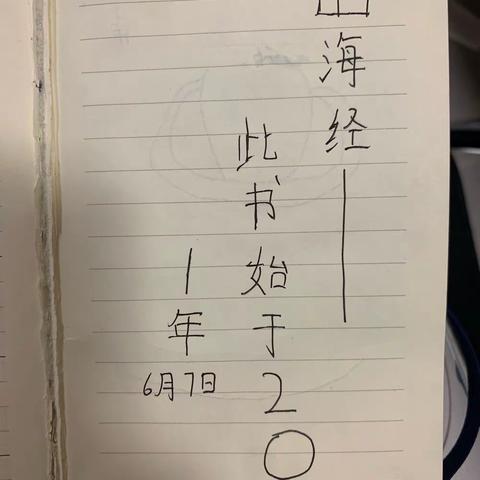 山海经——
此书始于2〇
1年
6月7日